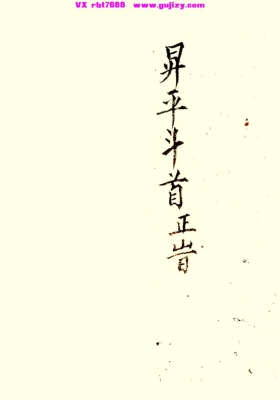 VX rbt7688  www.gujizy.com
昇平斗首正旨